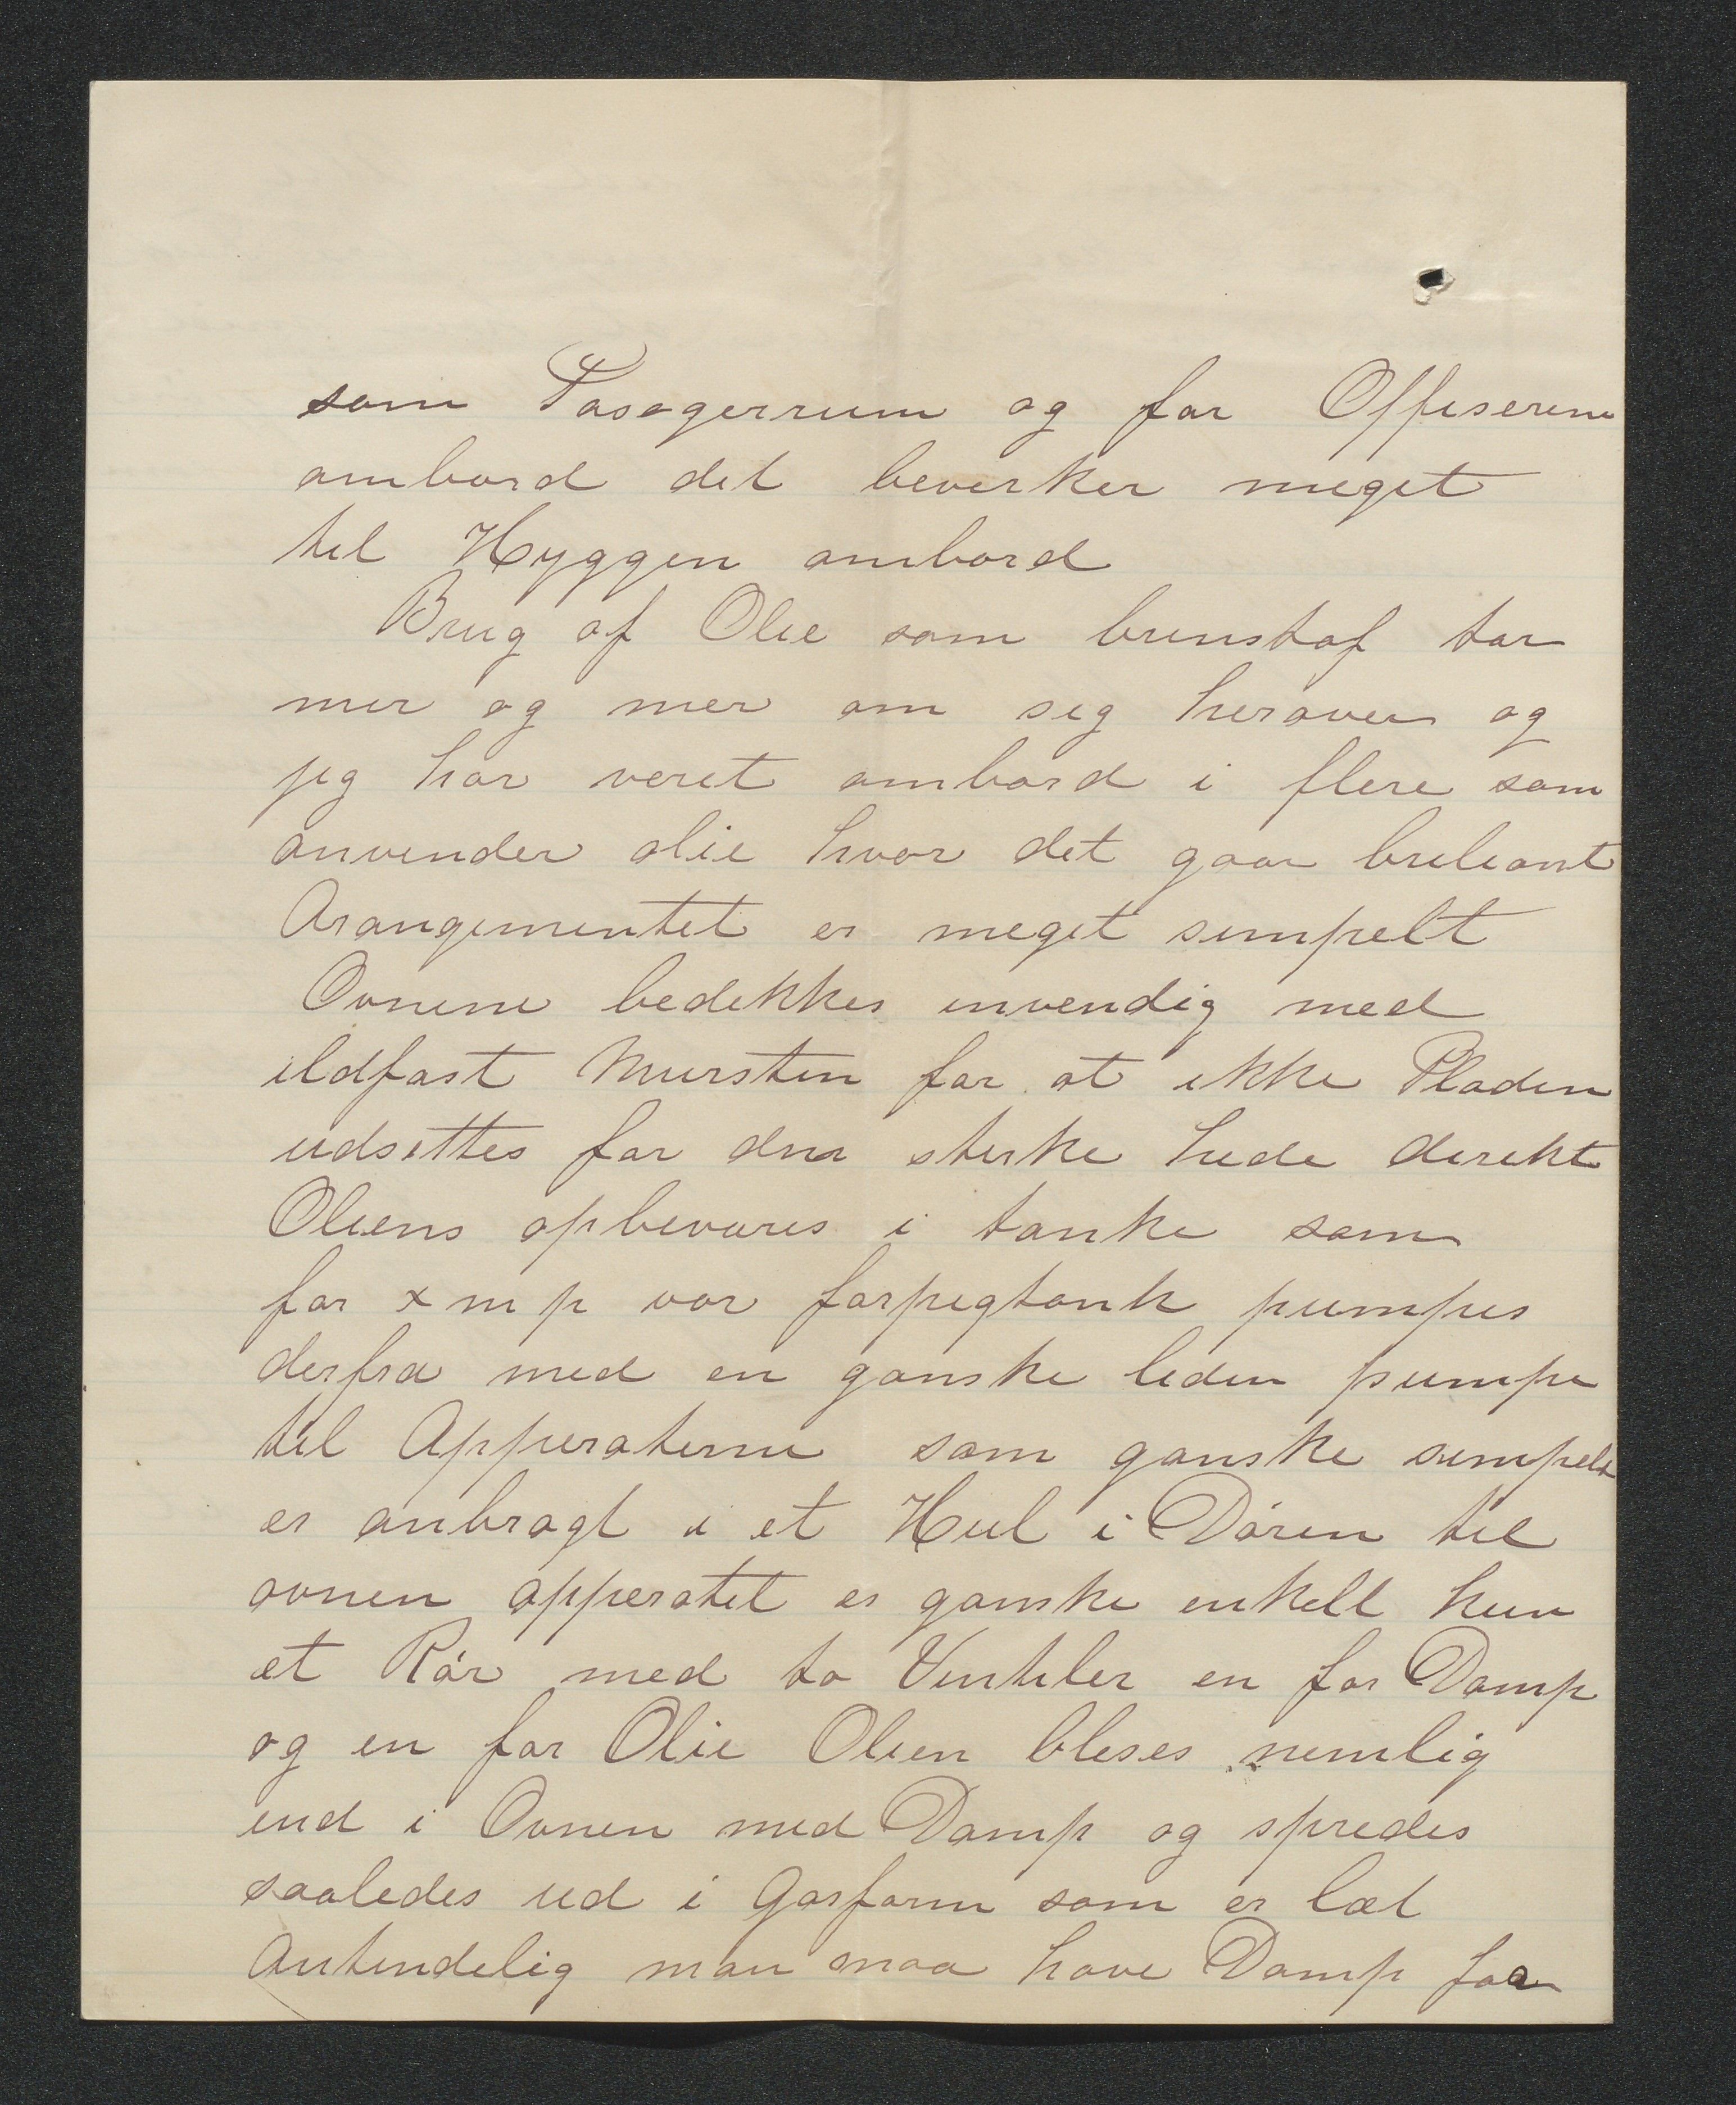 som Pasagerrum og for Offiserene
ombord det beverker meget
til Hyggen ombord
Brug af Olie som brenstof tar
mer og mer om sig herover og
jeg har veret ombord i flere som
anvender olie hvor det gaar breliant
Arangementet er meget simpelt
Ovnene bedekkes invendig med
ildfast Mursten for at ikke Pladen
udsettes for den sterke hede direkte
Oliens opbevares i tanke som
for xmp vor forpegtank pumpes
derfra med en ganske liden pumpe
til Apperaterne som ganske simpelt
er anbragt i et Hul i Dóren til
ovnen apperatet er ganske enkelt kun
et Rór med to Ventiler en for Damp
og en for Olie Olien bleses nemlig
ind i Ovnen med Damp og spredes
saaledes ud i Gasform som er læt
Antendelig man maa have Damp for